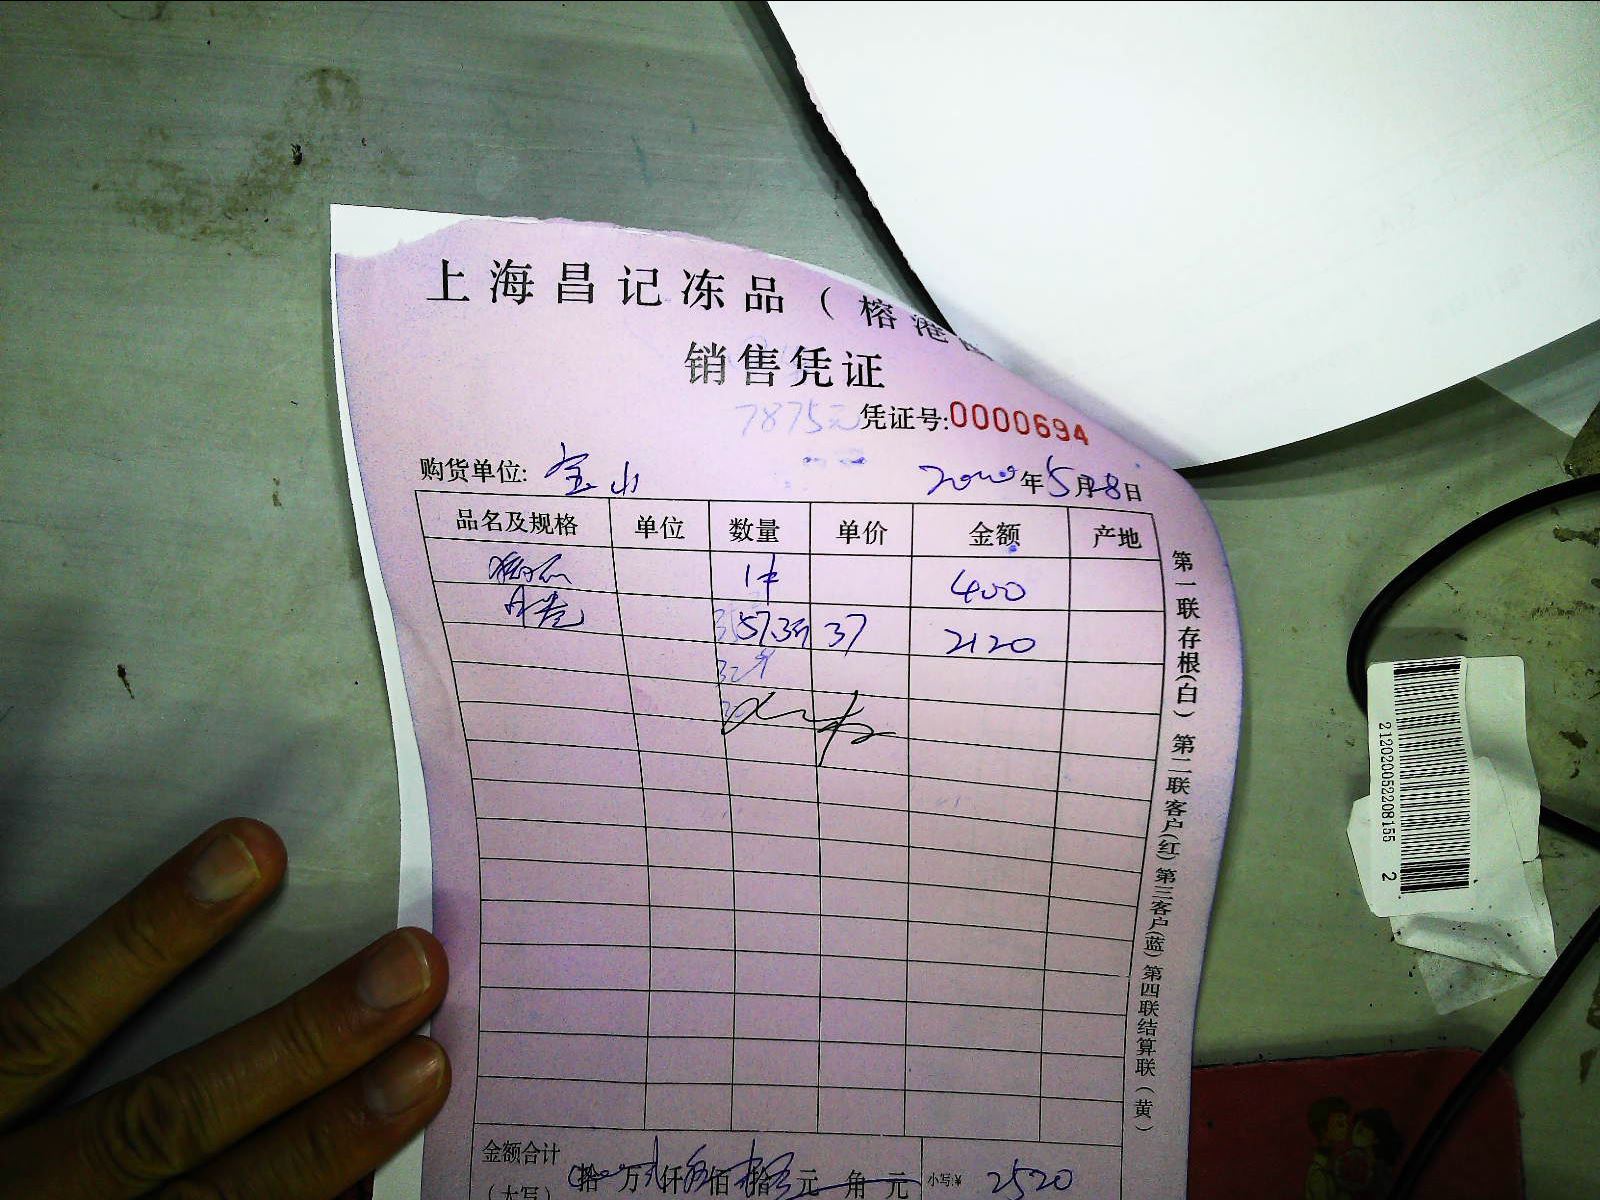 上海昌记冻品（榕港
销售凭证
7875元 凭证号:0000694
购货单位: 宝山 2020年5月28日
品名及规格 单位 数量 单价 金额 产地
1件 400
57.3斤 37 2120
金额合计 拾 万 仟 佰 拾 元 角 元 小写:¥ 2520
（大写）
第一联存根(白) 第二联客户(红) 第三客户(蓝) 第四联结算联(黄)
2120200522081552